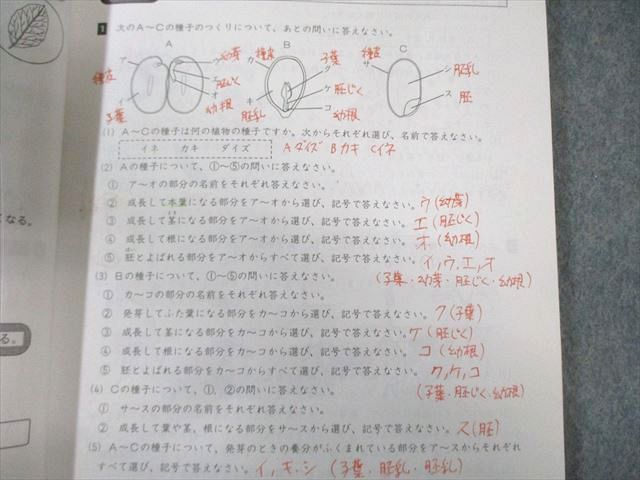 1 次のA〜Cの種子のつくりについて、あとの問いに答えなさい。
A
B
C
ア
イ
ウ
エ
オ
カ
キ
ク
ケ
コ
サ
シ
ス
種皮
子葉
幼芽
胚じく
幼根
種皮
胚乳
子葉
胚じく
幼根
種皮
胚乳
胚
(1) A〜Cの種子は何の植物の種子ですか。次からそれぞれ選び、名前で答えなさい。
イネ カキ ダイズ
Aダイズ Bカキ Cイネ
(2) Aの種子について、①〜⑤の問いに答えなさい。
① ア〜オの部分の名前をそれぞれ答えなさい。
② 成長して本葉になる部分をア〜オから選び、記号で答えなさい。ウ(幼芽)
③ 成長して茎になる部分をア〜オから選び、記号で答えなさい。エ(胚じく)
④ 成長して根になる部分をア〜オから選び、記号で答えなさい。オ(幼根)
⑤ 胚とよばれる部分をア〜オからすべて選び、記号で答えなさい。イ,ウ,エ,オ
(子葉・幼芽・胚じく・幼根)
(3) Bの種子について、①〜⑤の問いに答えなさい。
① カ〜コの部分の名前をそれぞれ答えなさい。
② 発芽してふた葉になる部分をカ〜コから選び、記号で答えなさい。ク(子葉)
③ 成長して茎になる部分をカ〜コから選び、記号で答えなさい。ケ(胚じく)
④ 成長して根になる部分をカ〜コから選び、記号で答えなさい。コ(幼根)
⑤ 胚とよばれる部分をカ〜コからすべて選び、記号で答えなさい。ク,ケ,コ
(子葉・胚じく・幼根)
(4) Cの種子について、①、②の問いに答えなさい。
① サ〜スの部分の名前をそれぞれ答えなさい。
② 成長して葉や茎、根になる部分をサ〜スから選び、記号で答えなさい。ス(胚)
(5) A〜Cの種子について、発芽のときの養分がふくまれている部分をア〜スからそれぞれ
すべて選び、記号で答えなさい。イ,キ,シ (子葉・胚乳・胚乳)
くなる。
る。